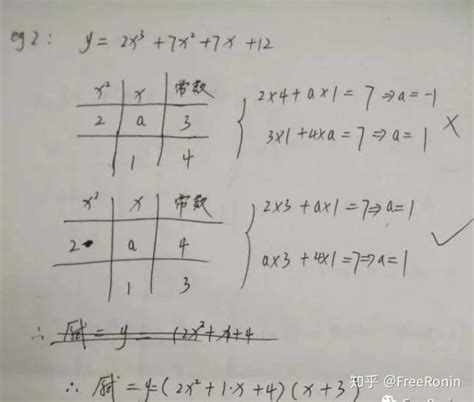 eg2: y = 2x³ + 7x² + 7x + 12
x² x 常数
2 a 3
1 4
2x4 + ax1 = 7 ⇒ a = -1
3x1 + 4xa = 7 ⇒ a = 1 ×
x² x 常数
2 a 4
1 3
2x3 + ax1 = 7 ⇒ a = 1
ax3 + 4x1 = 7 ⇒ a = 1 ✓
∴ 原式 = y = (2x² + x + 4
∴ 原式 = y = (2x² + 1·x + 4)(x + 3)
知乎 @FreeRonin